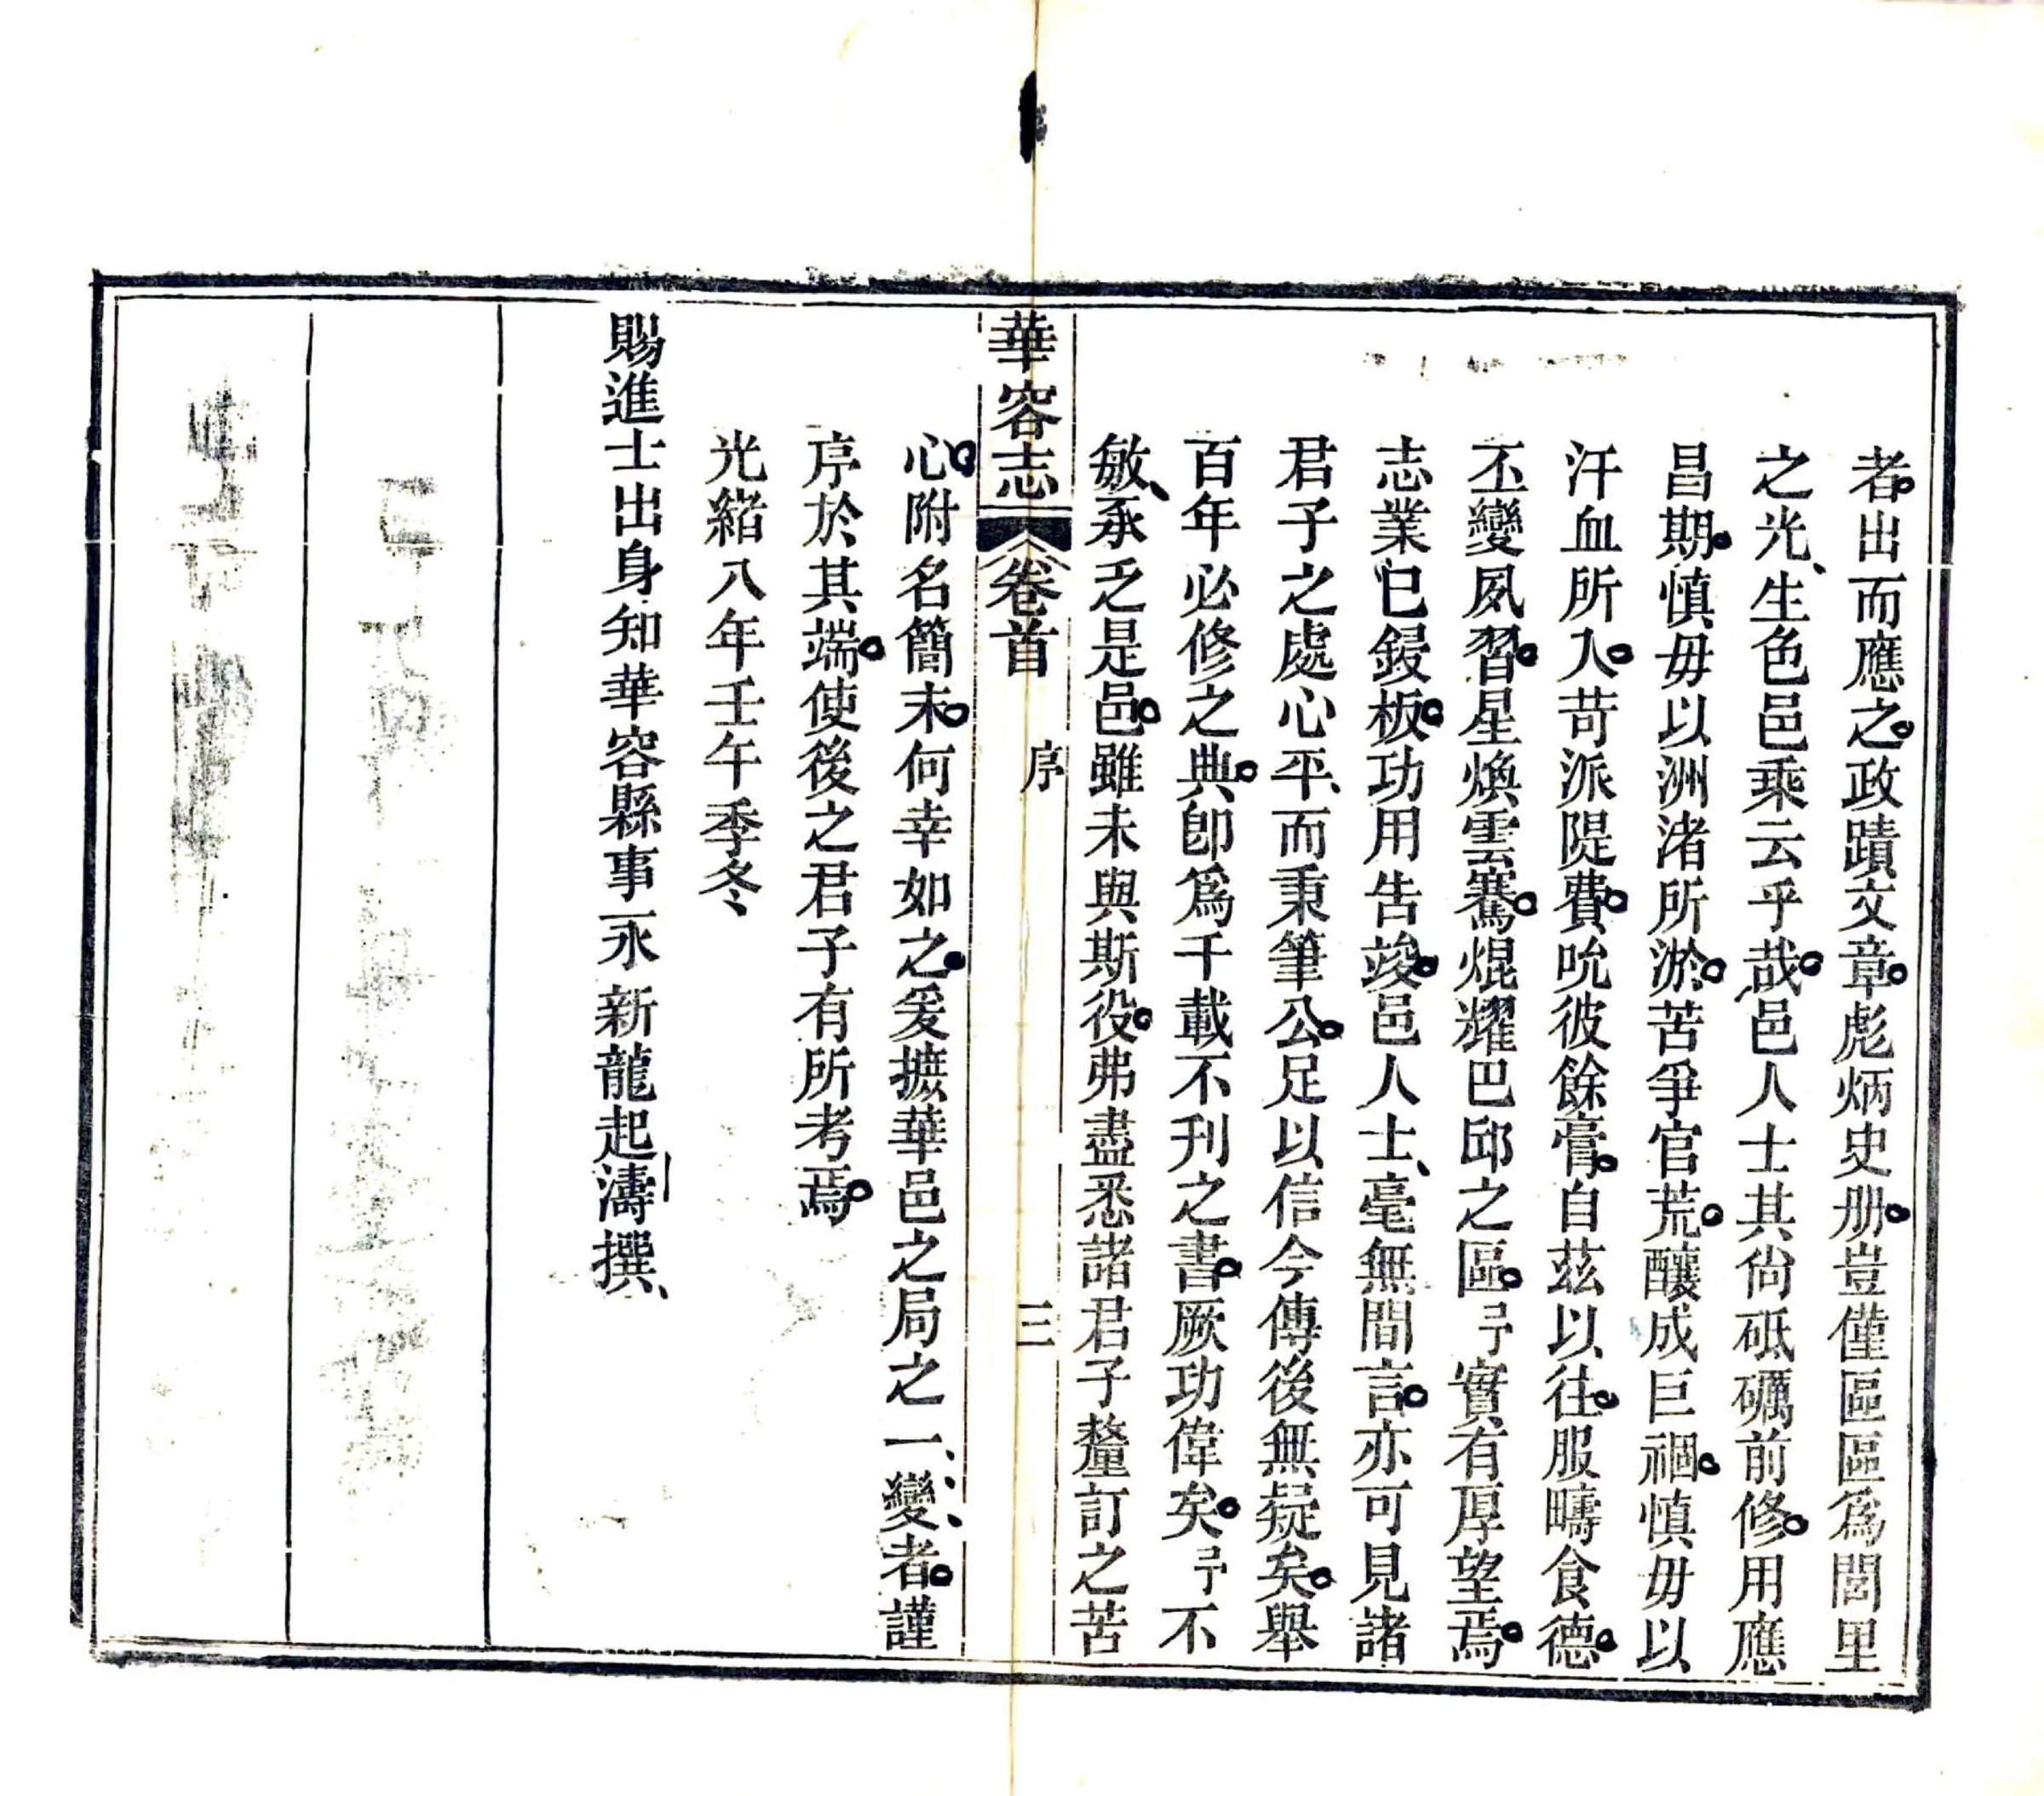 者出而應之政蹟文章彪炳史册豈僅區區爲閭里
之光生色邑乘云乎哉邑人士其尙砥礪前修用應
昌期慎毋以洲渚所淤苦爭官荒釀成巨禍慎毋以
汗血所入苛派隄費吮彼餘膏自茲以往服疇食德
丕變夙習星煥雲騫焜耀巴邱之區予實有厚望焉
志業已鋟板功用告竣邑人士毫無間言亦可見諸
君子之處心平而秉筆公足以信今傳後無疑矣舉
百年必修之典卽爲千載不刊之書厥功偉矣予不
敏承乏是邑雖未與斯役弗盡悉諸君子釐訂之苦
華容志 卷首 序 三
心附名簡末何幸如之爰摭華邑之局之一變者謹
序於其端使後之君子有所考焉
光緒八年壬午季冬
賜進士出身知華容縣事永新龍起濤撰